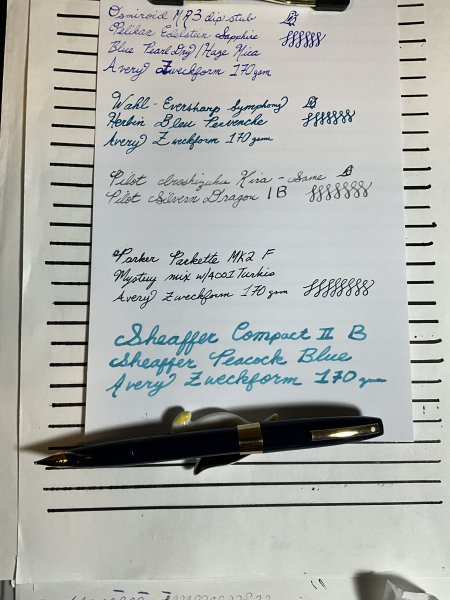 Osmiroid MR3 dip stub
Pelikan Edelstein Sapphire
Blue Pearl Dry/Haze Mica
Avery Zweckform 170 gsm
Wahl-Eversharp Symphony
Herbin Bleu Pervenche
Avery Zweckform 170 gsm
Pilot Iroshizuku Kiri-Same
Pilot Silvern Dragon 1B
Parker Parkette MK2 F
Mystery mix w/4001 Turkis
Avery Zweckform 170 gsm
Sheaffer Compact II B
Sheaffer Peacock Blue
Avery Zweckform 170 gsm